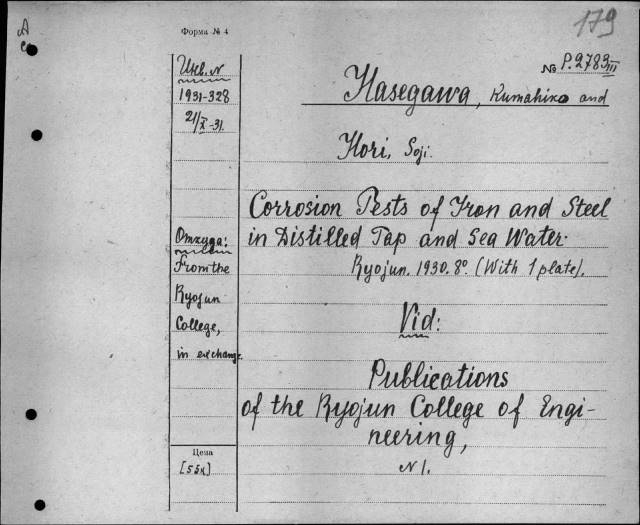 179
Форма № 4
№ P.2783 III
Инв. N
1931-328
21/X-31.
Hasegawa, Kumahiko and
Hori, Soji.
Corrosion Tests of Iron and Steel
in Distilled Tap and Sea Water.
Ryojun. 1930. 8°. (With 1 plate).
Откуда:
From the
Ryojun
College,
in exchange.
Vid:
Publications
of the Ryojun College of Engi-
neering,
N 1.
Цена
[55к]